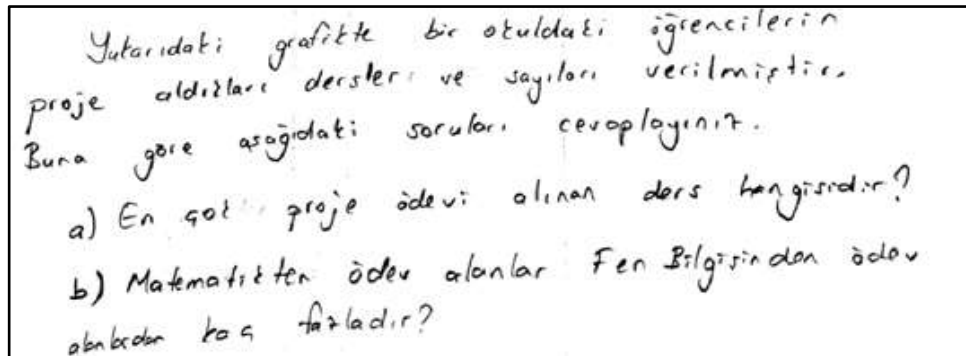 Yukarıdaki grafikte bir okuldaki öğrencilerin
proje aldıkları dersler ve sayıları verilmiştir.
Buna göre aşağıdaki soruları cevaplayınız.
a) En çok proje ödevi alınan ders hangisidir?
b) Matematikten ödev alanlar Fen Bilgisinden ödev
alanlardan kaç fazladır?